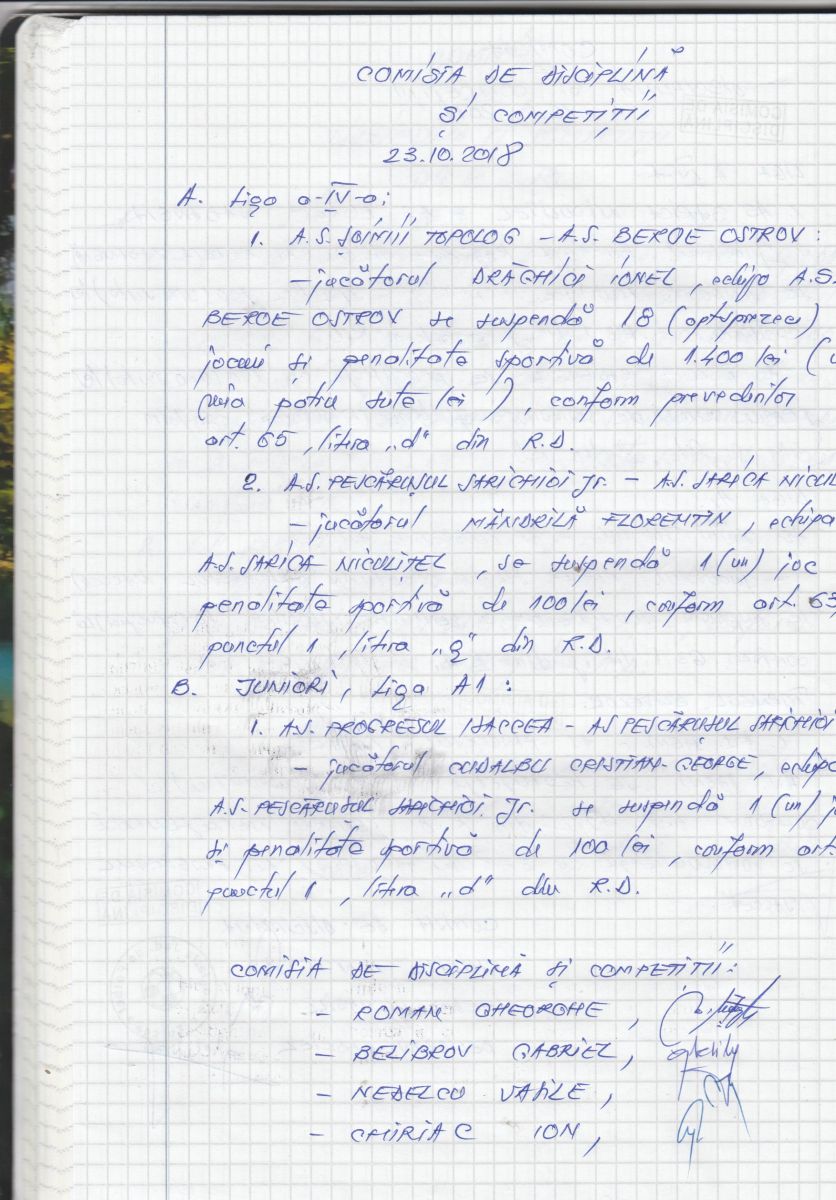 COMISIA DE DISCIPLINĂ
ȘI COMPETIȚII
23.10.2018
A. Liga a-IV-a:
1. A.S. ȘOIMII TOPOLOG – A.S. BEROE OSTROV :
– jucătorul DRĂGHICI IONEL, echipa A.S.
BEROE OSTROV se suspendă 18 (optsprezece)
jocuri și penalitate sportivă de 1.400 lei (
mia patru sute lei), conform prevederilor
art. 65, litera „d" din R.D.
2. A.S. PESCĂRUȘUL SARICHIOI Jr. – A.S. SARICA NICUL
– jucătorul MÂNDRILĂ FLORENTIN, echipa
A.S. SARICA NICULIȚEL, se suspendă 1 (un) joc
penalitate sportivă de 100 lei, conform art. 63,
punctul 1, litera „g" din R.D.
B. JUNIORI, Liga A1 :
1. A.S. PROGRESUL ISACCEA – AS PESCĂRUȘUL SARICHIOI
– jucătorul CUDALBU CRISTIAN-GEORGE, echipa
A.S. PESCĂRUȘUL SARICHIOI Jr. se suspendă 1 (un) j
și penalitate sportivă de 100 lei, conform art.
punctul 1, litera „d" din R.D.
COMISIA DE DISCIPLINĂ ȘI COMPETIȚII :
– ROMAN GHEORGHE,
– BELIBROV GABRIEL,
– NEDELCU VASILE,
– CHIRIAC ION,